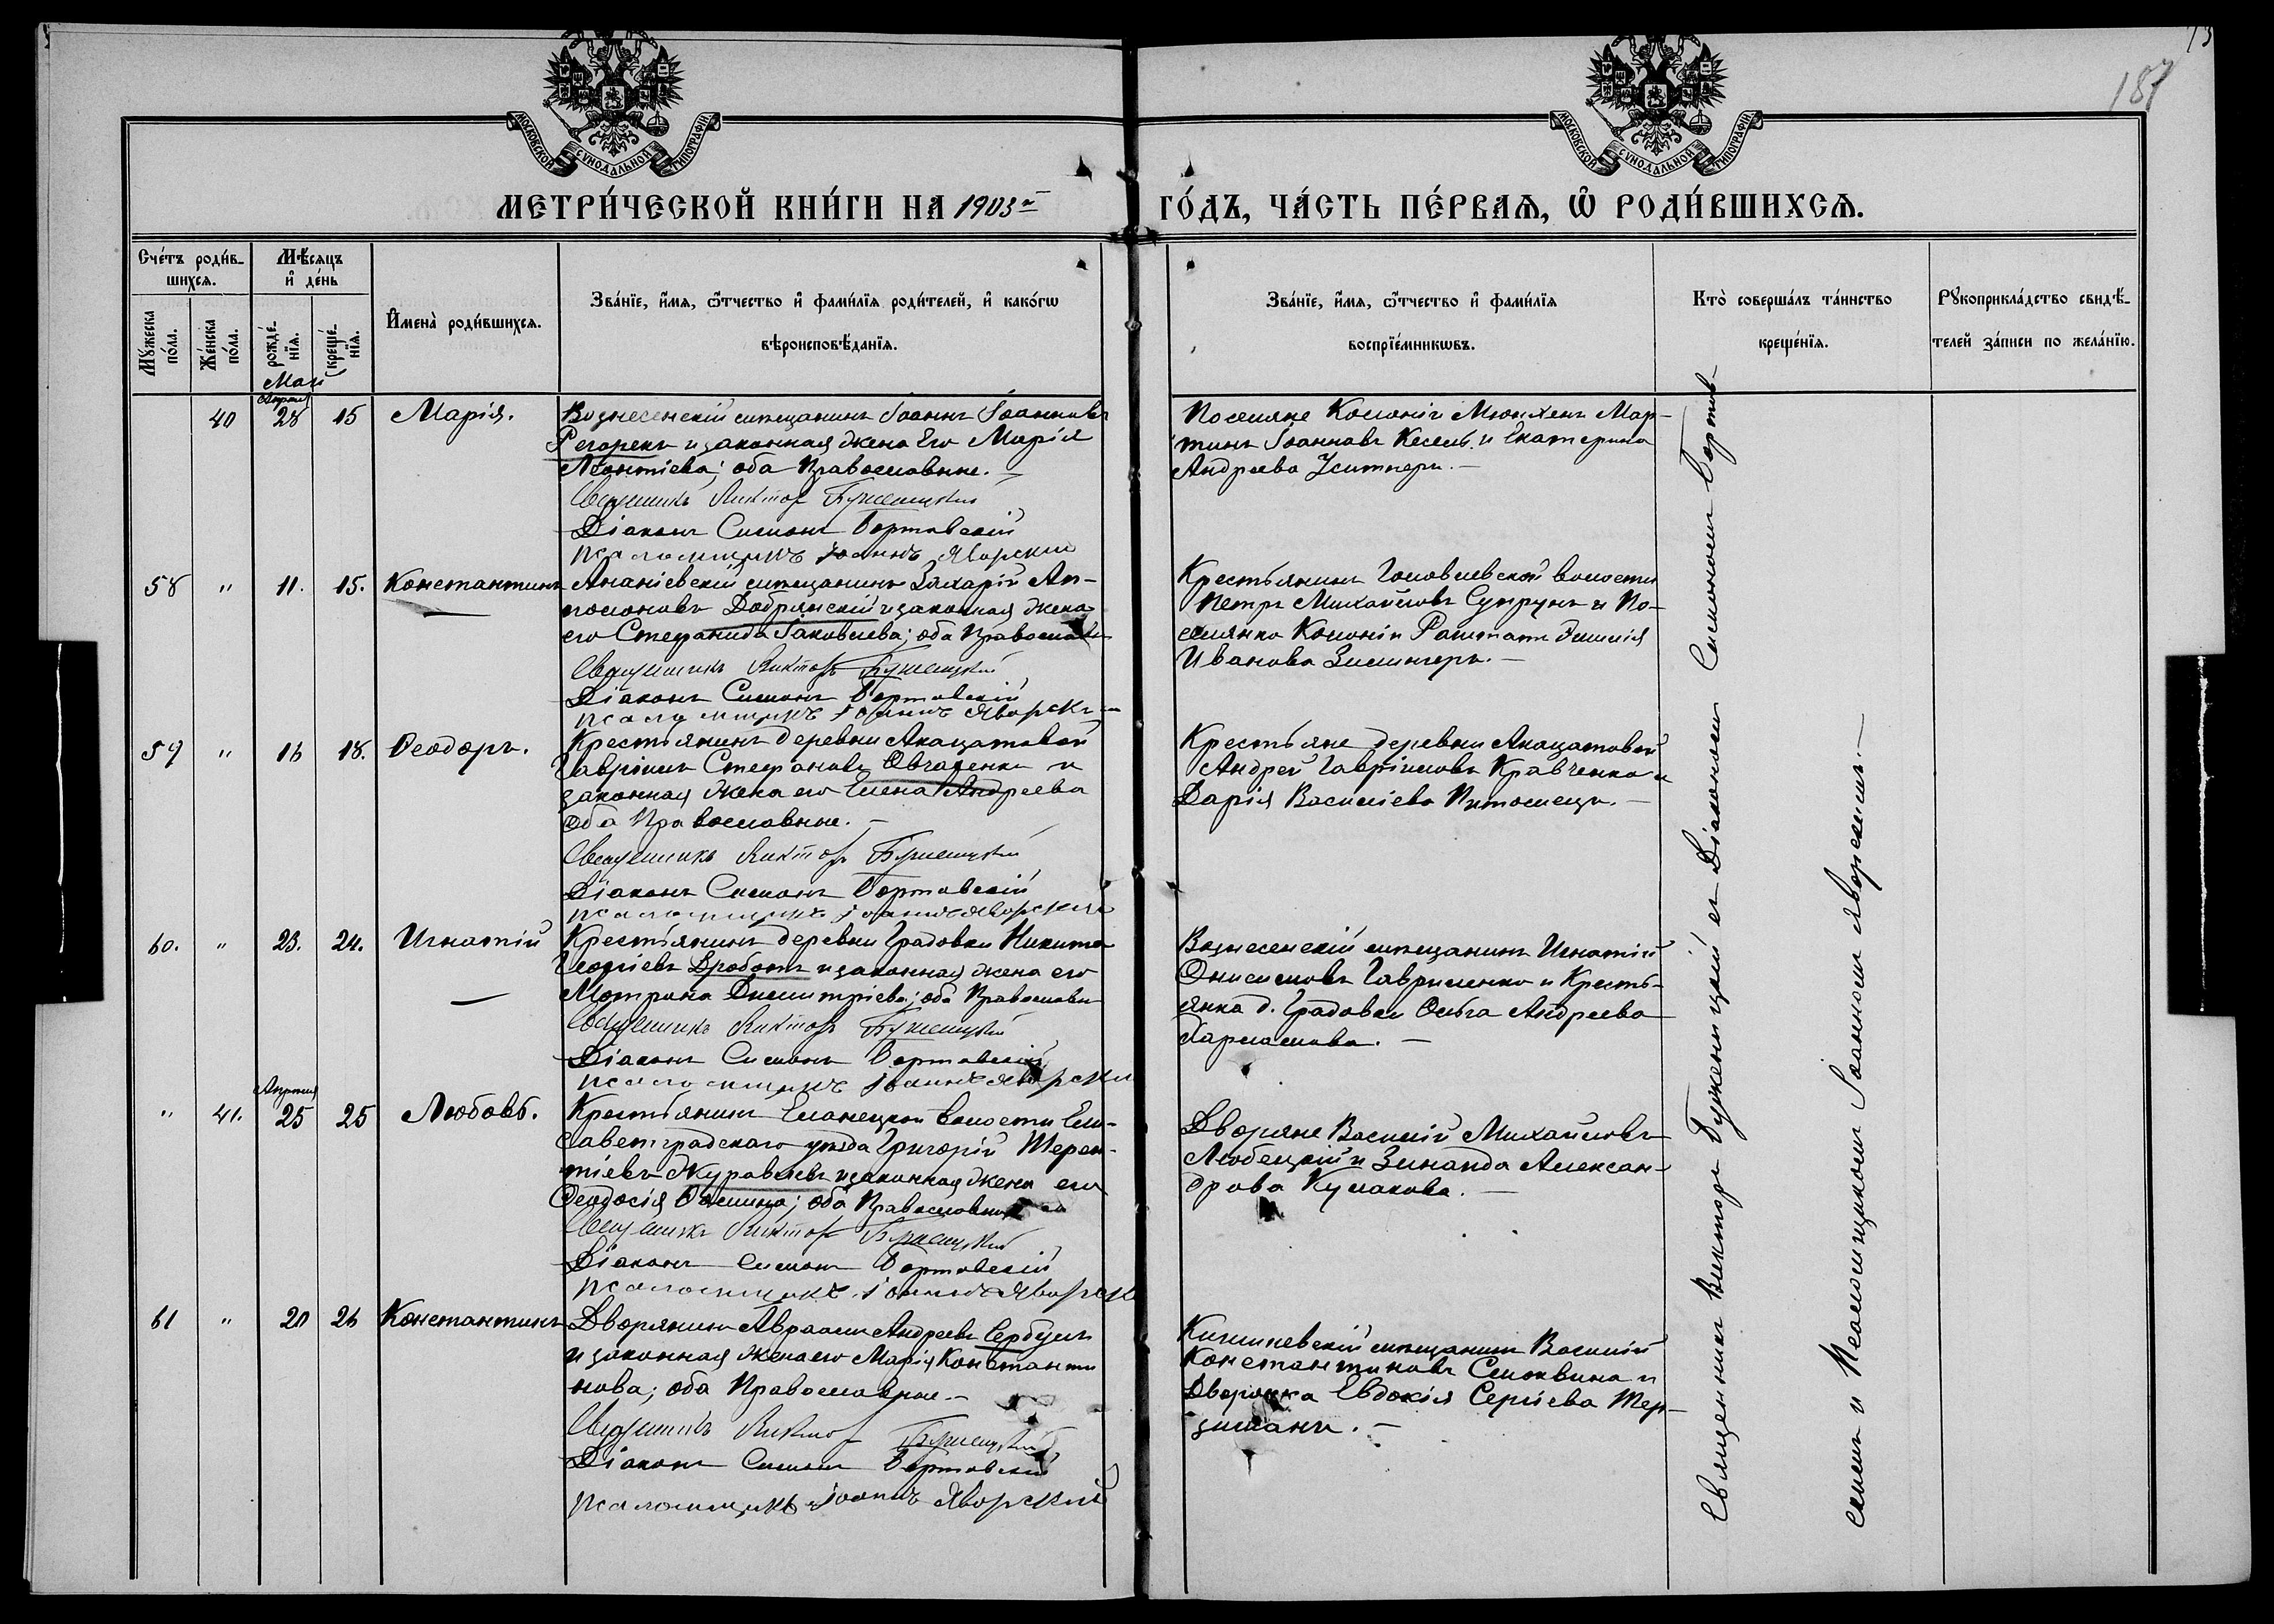 187
МОСКОВСКОЙ СѴНОДАЛЬНОЙ ТИПОГРАФІИ
МОСКОВСКОЙ СѴНОДАЛЬНОЙ ТИПОГРАФІИ
МЕТРИ́ЧЕСКОЙ КНИ́ГИ НА 1903й ГО́ДЪ, ЧА́СТЬ ПЕ́РВАѦ, Ѡ҆ РОДИ́ВШИХСѦ.
Сче́тъ роди́в-
шихсѧ.
Мѣ́сѧцъ
и҆ де́нь
Мꙋ́жеска
по́ла.
Же́нска
по́ла.
рожде́-
нїѧ.
креще́-
нїѧ.
И҆мена̀ роди́вшихсѧ.
Зва́нїе, и҆́мѧ, ѻ҆́тчество и҆ фами́лїѧ роди́телей, и҆ како́гѡ
вѣроисповѣ́данїѧ.
Зва́нїе, и҆́мѧ, ѻ҆́тчество и҆ фами́лїѧ
воспрїе́мникѡвъ.
Кто̀ соверша́лъ та́инство
креще́нїѧ.
Рꙋкоприкла́дство свидѣ́-
телей за́писи по жела́нїю.
Май
Апрѣля
40 28 15 Марія.
Вознесенскій мѣщанинъ Іоаннъ Іоанновъ
Регорекъ и законная жена Его Марія
Леонтіева; оба Православные. –
Священникъ Викторъ Бужемицкій
Діаконъ Симонъ Бортовскій
псаломщикъ Іоаннъ Яворскій
Поселяне Колоніи Мюнхенъ Мар-
тинъ Іоанновъ Кесель и Екатерина
Андреева –
58 " 11. 15. Константинъ
Ананіевскій мѣщанинъ Захарій Ап-
полоновъ Добрянскій и законная жена
его Стефанида Іаковлева; оба Православн
Священникъ Викторъ Бужемицкій
Діаконъ Симонъ Бортовскій
псаломщикъ Іоаннъ Яворскій
Крестьянинъ Головлевской волости
Петръ Михайловъ Супрунъ и По-
селянка Колоніи Раштатъ Эмилія
Иванова –
59 " 16 18. Ѳеодоръ.
Крестьянинъ деревни Акацатовой
Гавріилъ Стефановъ Овчаренко и
законная жена его Елена Андреева
оба Православные. –
Священникъ Викторъ Бужемицкій
Діаконъ Симонъ Бортовскій
псаломщикъ Іоаннъ Яворскій
Крестьяне деревни Акацатовой
Андрей Гавріиловъ Кравченко и
Дарія Василіева –
60. " 23. 24. Игнатій
Крестьянинъ деревни Градовки Никита
Георгіевъ Дроботъ и законная жена его
Мотрона Димитріева; оба Православн
Священникъ Викторъ Бужемицкій
Діаконъ Симонъ Бортовскій
псаломщикъ Іоаннъ Яворскій
Вознесенскій мѣщанинъ Игнатій
Онисимовъ Гавриленко и Кресть-
янка д. Градовки Ольга Андреева
Харламова. –
Апрѣля
" 41. 25 25 Любовь.
Крестьянинъ Еланецкой волости Ели-
саветградскаго уѣзда Григорій Терен-
тіевъ Журавлевъ и законная жена его
Ѳеодосія Ѳомина; оба Православные
Священникъ Викторъ Бужемицкій
Діаконъ Симонъ Бортовскій
псаломщикъ Іоаннъ Яворскій
Дворяне Василій Михайловъ
Любецкій и Зинаида Алексан-
дрова Кулакова. –
61 " 20 26 Константинъ
Дворянинъ Авраамъ Андреевъ Сербулъ
и законная жена его Марія Константи
нова; оба Православные. –
Священникъ Викторъ Бужемицкій
Діаконъ Симонъ Бортовскій
псаломщикъ Іоаннъ Яворскій
Кишиневскій мѣщанинъ Василій
Константиновъ Смоквина и
Дворянка Евдокія Сергіева Тер-
зиманъ. –
Священникъ Викторъ Бужемицкій съ Діакономъ Симономъ Бортов-
скимъ и Псаломщикомъ Іоанномъ Яворскимъ. –